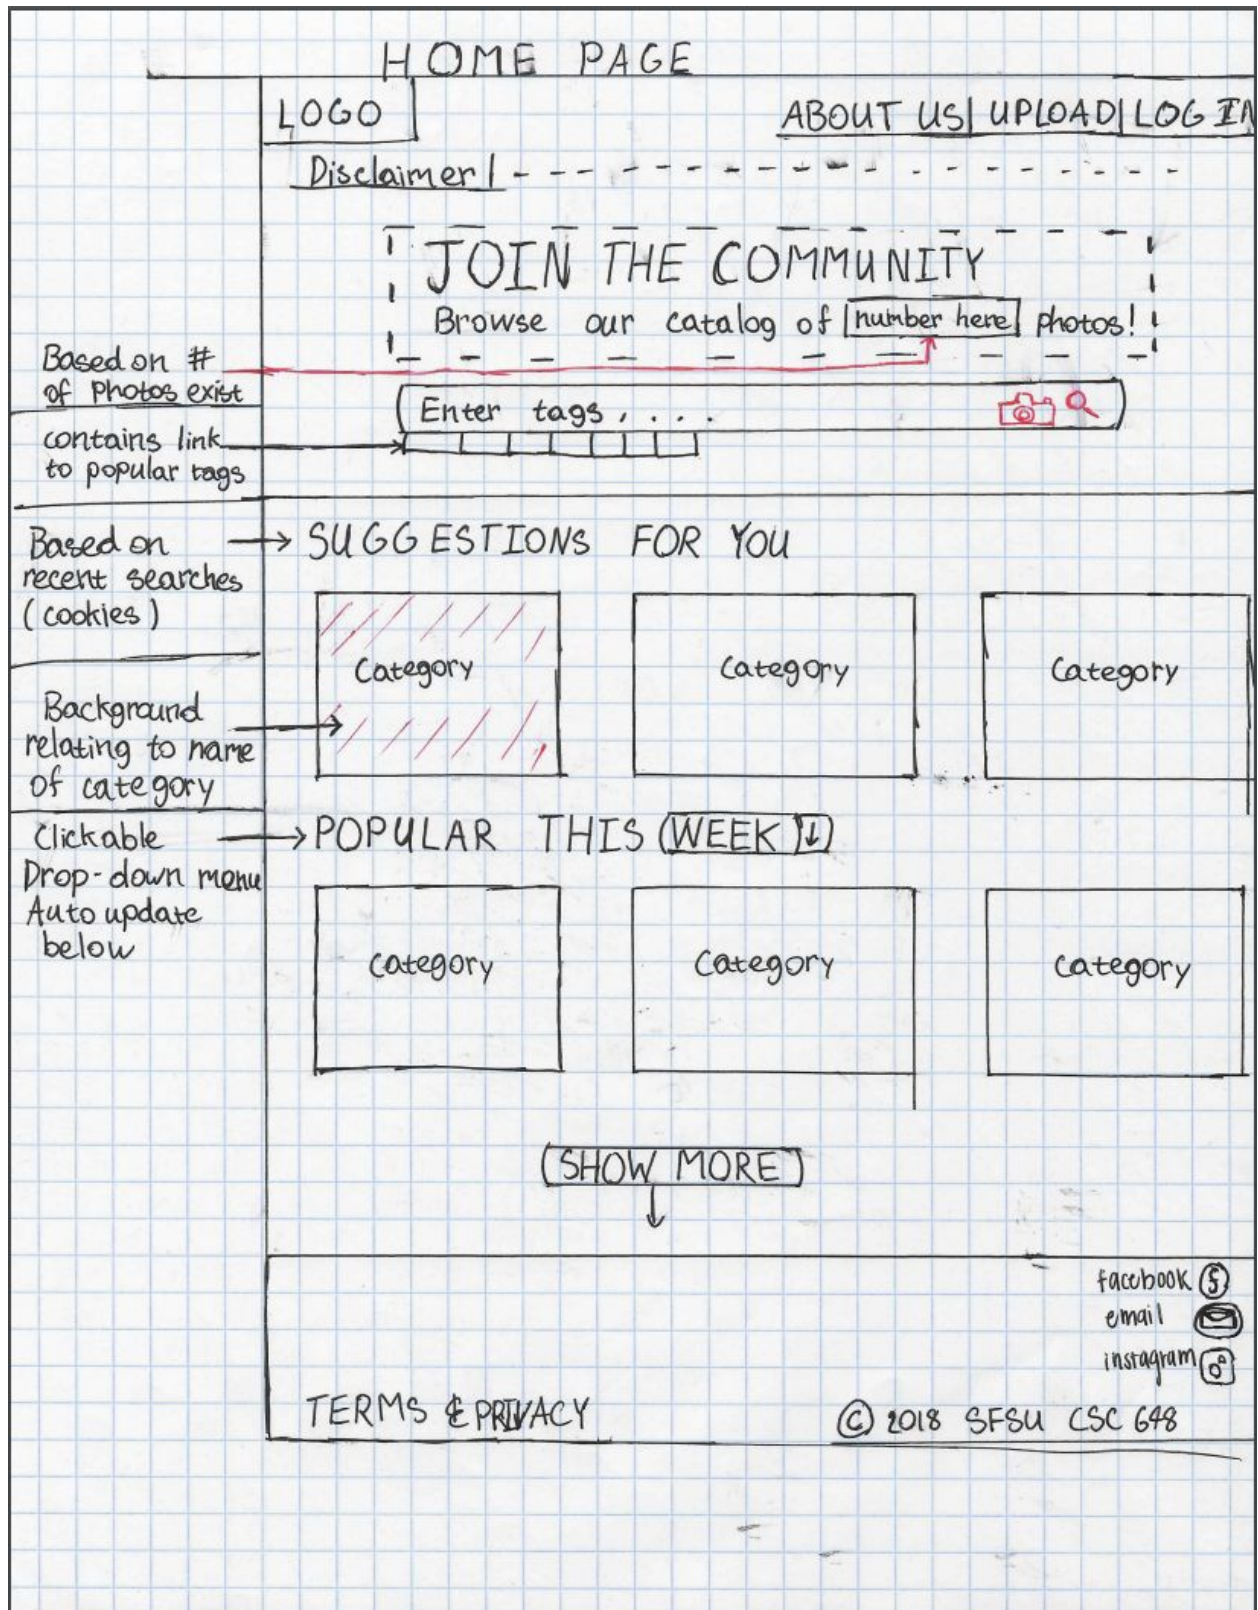 HOME PAGE
LOGO
ABOUT US | UPLOAD | LOG IN
Disclaimer |
JOIN THE COMMUNITY
Browse our catalog of number here photos!
Based on #
of Photos exist
Enter tags, . . .
contains link
to popular tags
Based on
recent searches
(cookies)
SUGGESTIONS FOR YOU
Category
Category
Category
Background
relating to name
of category
Clickable
Drop-down menu
Auto update
below
POPULAR THIS WEEK ↓
Category
Category
Category
SHOW MORE
facebook
email
instagram
TERMS & PRIVACY
© 2018 SFSU CSC 648